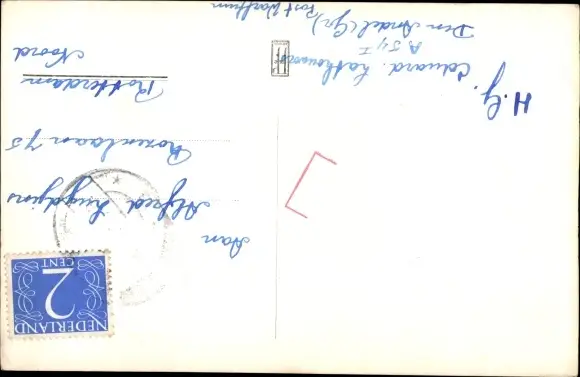 H.G.
Eduard
A 54 I
Den Andel (Gr.)
Post Warffum
Aan
Alfred
Rozenlaan 75
Rotterdam
Noord
NEDERLAND
2
CENT